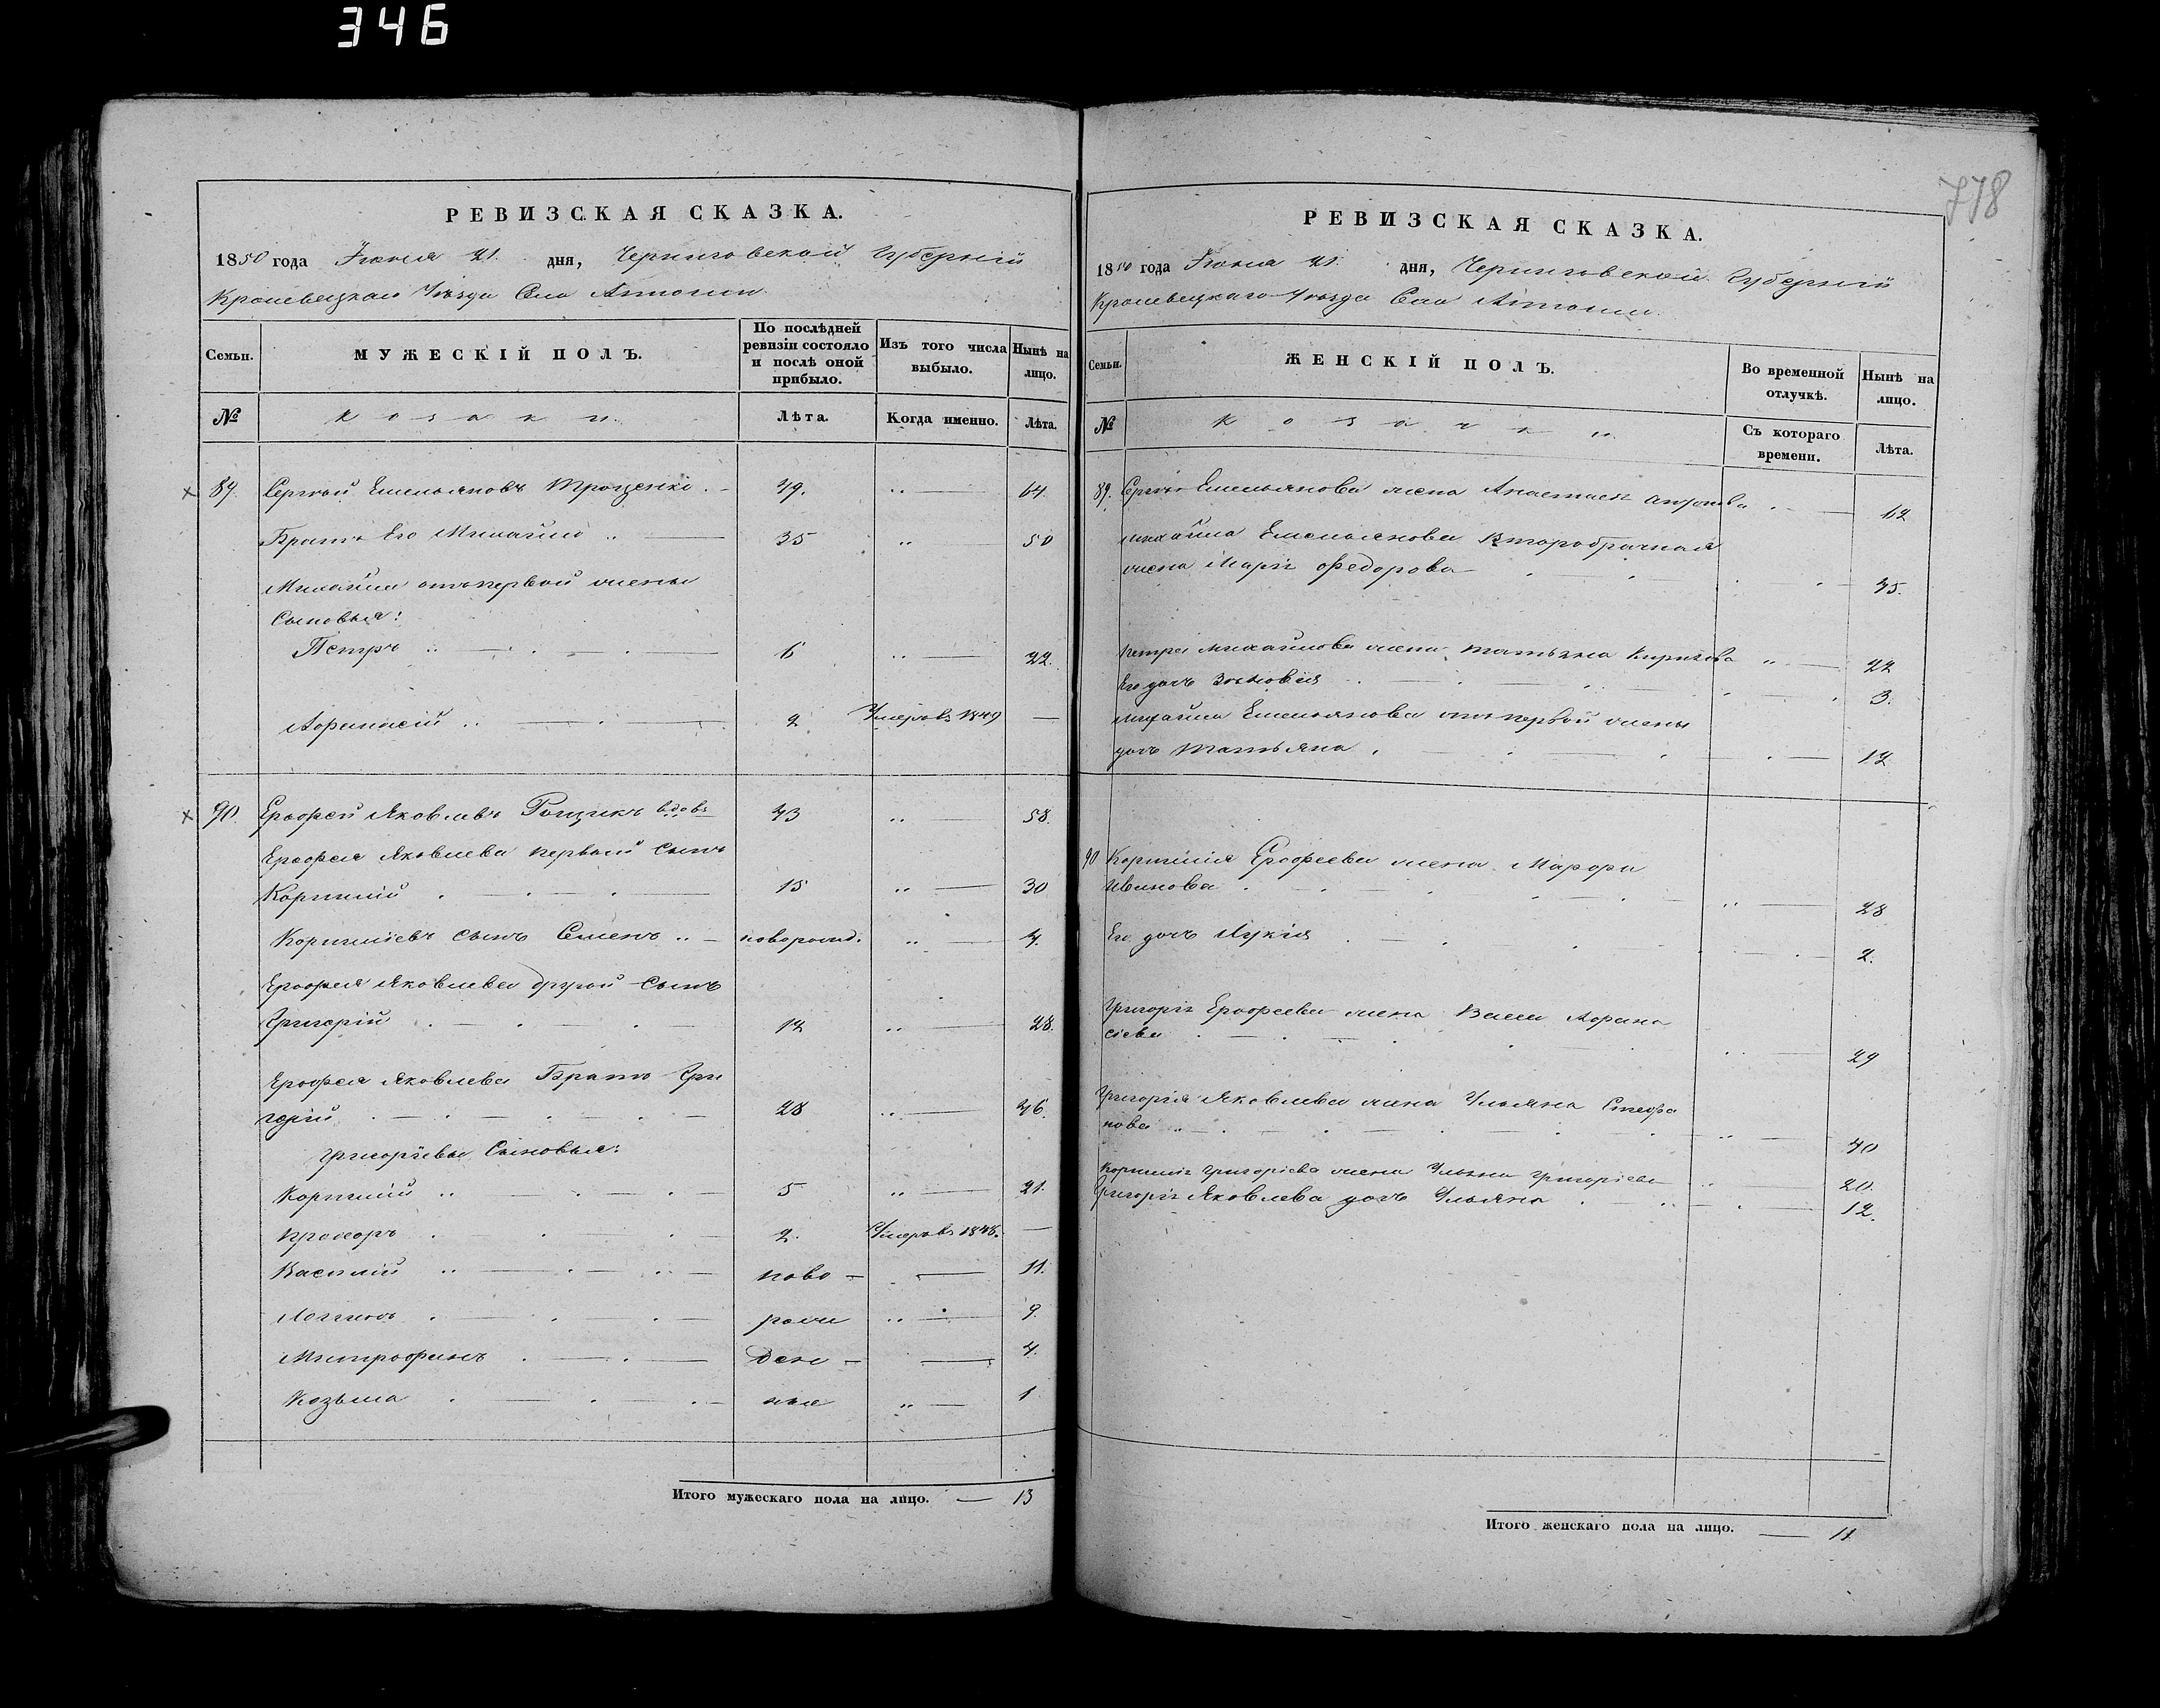 346
778
РЕВИЗСКАЯ СКАЗКА.
1850 года Июня 21. дня, Черниговской Губерній
Кролевецкаго Уѣзда Села
МУЖЕСКІЙ ПОЛЪ.
Семьи.
По послѣдней ревизіи состояло и послѣ оной прибыло.
Изъ того числа выбыло.
Нынѣ на лицо.
№
Козаки.
Лѣта.
Когда именно.
Лѣта.
89. Сергѣй Емельяновъ Троценко 49. 64.
Братъ Его Михайло 35 50
Михайла отъ первой жены
Сыновья:
Петръ 6 22.
Афанасій 2 Умеръ въ 1849
90. Ерофей Яковлевъ вдовъ 43 58.
Ерофея Яковлева первый Сынъ
Корнилій 15 30
Корниліевъ Сынъ Семенъ новорожд. 4.
Ерофея Яковлева другой Сынъ
Григорій 12 28.
Ерофея Яковлева Братъ Гри
горій 28 46.
Григорьевы Сыновья:
Корнилій 5 21.
Прохоръ 2. Умеръ въ 1848.
Василій ново 11.
Логгинъ рож 9.
Митрофанъ ден 4.
Козьма ные 1
Итого мужескаго пола на лицо. — 13
РЕВИЗСКАЯ СКАЗКА.
1850 года Июня 21. дня, Черниговской Губерній
Кролевецкаго Уѣзда Села
Семьи.
ЖЕНСКІЙ ПОЛЪ.
Во временной отлучкѣ.
Нынѣ на лицо.
№
Козачки.
Съ котораго времени.
Лѣта.
89. Сергѣя Емельянова жена Анастасія 62
Михайла Емельянова второбрачная
жена Марія Федорова 45.
Петра Михайлова жена Татьяна Кирилова 22
Его дочь Зѣновія 3.
Михайла Емельянова отъ первой жены
дочь Татьяна 12
90 Корнилія Ерофеева жена Марфа
Иванова 28
Его дочь Лукія 2.
Григорія Ерофеева жена Васса Афана
сіева 29
Григорія Яковлева жена Ульяна Стефа
нова 40
Корнилія Григоріева жена Ульяна Григоріева 20.
Григорія Яковлева дочь Ульяна 12.
Итого женскаго пола на лицо. — 11